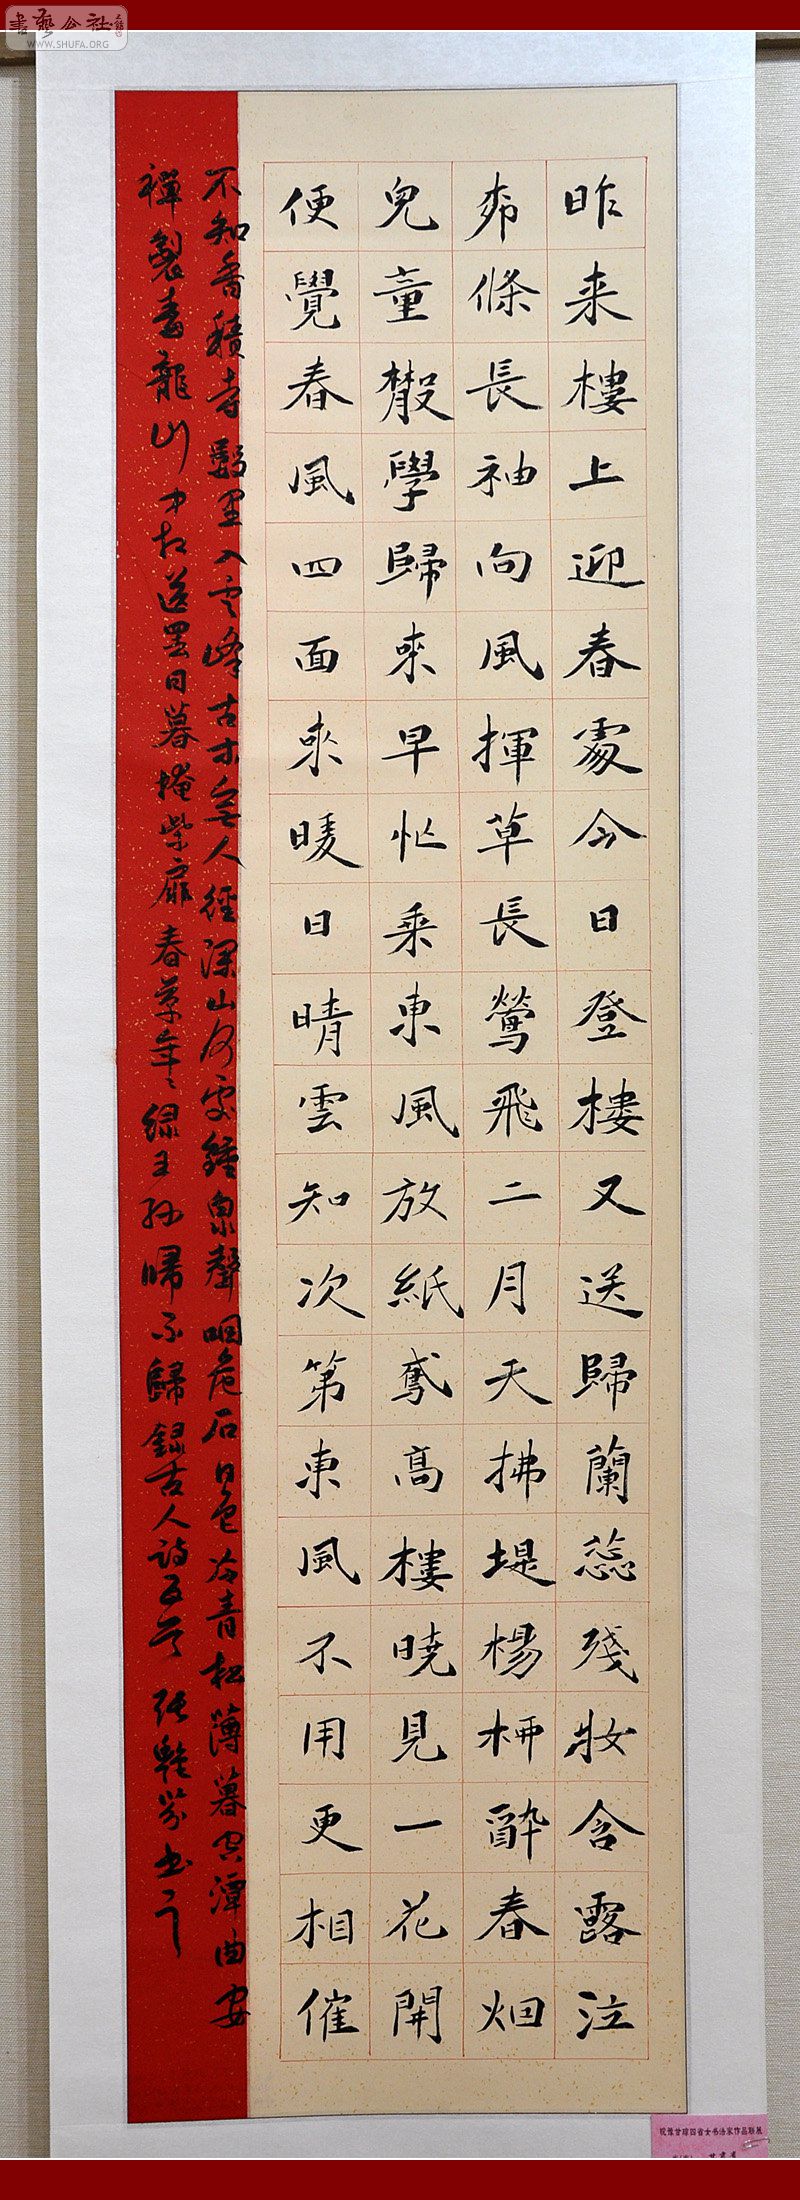 昨来樓上迎春處今日登樓又送歸蘭蕊殘妝含露泣
柳條長袖向風揮草長鶯飛二月天拂堤楊柳醉春烟
兒童散學歸來早忙乘東風放紙鳶高樓曉見一花開
便覺春風四面來暖日晴雲知次第東風不用更相催
不知香積寺數里入雲峰古木無人徑深山何處鐘泉聲咽危石日色冷青松薄暮空潭曲安
禪製毒龍山中相送罷日暮掩柴扉春草年々綠王孫歸不歸錄古人詩五首 張艷芬書之
書藝公社
WWW.SHUFA.ORG
皖豫甘琼四省女书法家作品联展
甘肃省